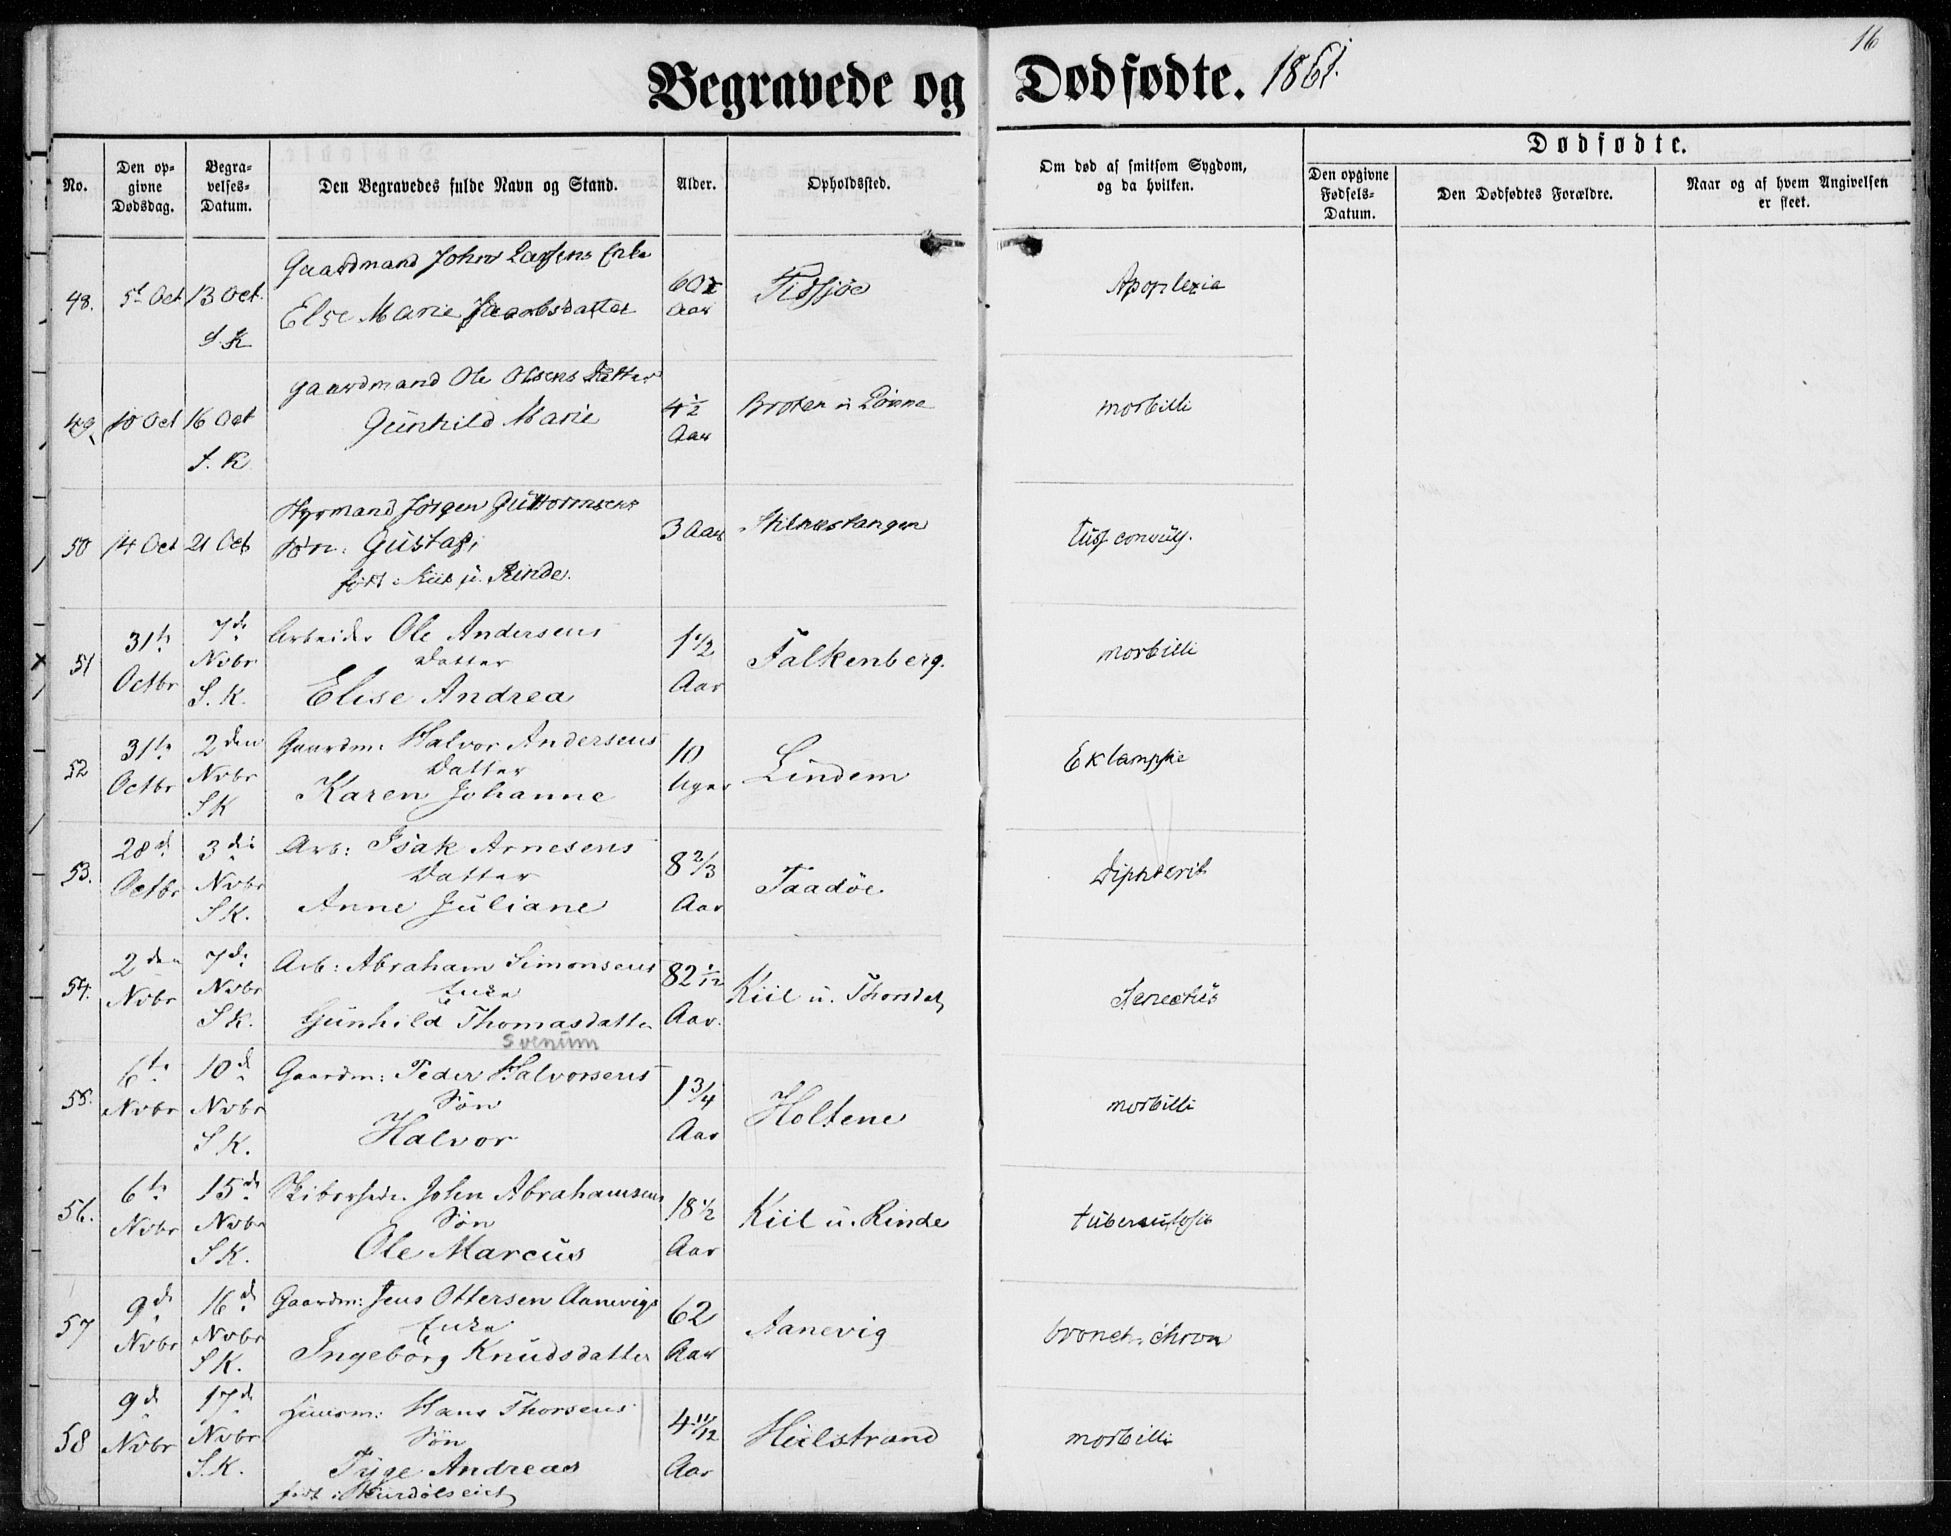 16
Begravede og Dødfødte. 1861.
No.
Den opgivne Dødsdag.
Begravelses-Datum.
Den Begravedes fulde Navn og Stand.
Alder.
Opholdssted.
Om død af smitsom Sygdom, og da hvilken.
Dødfødte.
Den opgivne Fødsels-Datum.
Den Dødfødtes Forældre.
Naar og af hvem Angivelsen er skeet.
48. 5t Oct 13 Oct. S. K Gaardmand John Larsens Enke
Else Marie Jacobsdatter 60 Aar Apoplexia
49. 10 Oct 16 Oct S. K Gaardmand Ole Olsens Datter
Gunhild Marie 4½ Aar Broten u morbilli
50 14 Oct 21 Oct Styrmand Jørgen Guttormsens
Søn: Gustav,
født Kiil u. Rinde. 3 Aar Stilnestangen Tuss convuls.
51 31te Octbr 7de Nvbr S. K. Arbeider Ole Andersens
Datter
Elise Andrea 1 1/2 Aar Falkenberg. morbilli
52 31te Octbr 2den Nvbr S K Gaardm. Halvor Andersens
Datter
Karen Johanne 10 Uger Lindem Eklampsie
53. 28de Octbr 3die Nvbr S K. Arb: Isak Arnesens
Datter
Anne Juliane 8 2/3 Aar Taadøe Diphterit
54. 2den Nvbr 7de Nvbr S K. Arb: Abraham Simonsens
Enke
Gunhild Thomasdatter
Svenum 82 1/12 Aar. Kiil u. Senectus
55. 6te Nvbr 10de Nvbr S K. Gaardm: Peder Halvorsens
Søn
Halvor 1 3/4 Aar Holtene morbilli
56. 6te Nvbr 15de Nvbr S K. John Abrahamsens
Søn
Ole Marcus 18 1/2 Aar Kiil u. Rinde tuberculosis
57 9de Nvbr 16de Nvbr S K. Gaardm: Jens Ottersen Aanevigs
Enke
Ingeborg Knudsdatter 62 Aar Aanevig bronch. chron
58 9de Nvbr 17de Nvbr S. K. Huusm: Hans Thorsens
Søn
Tyge Andreas
født i 4 11/12 Aar Heilstrand morbilli